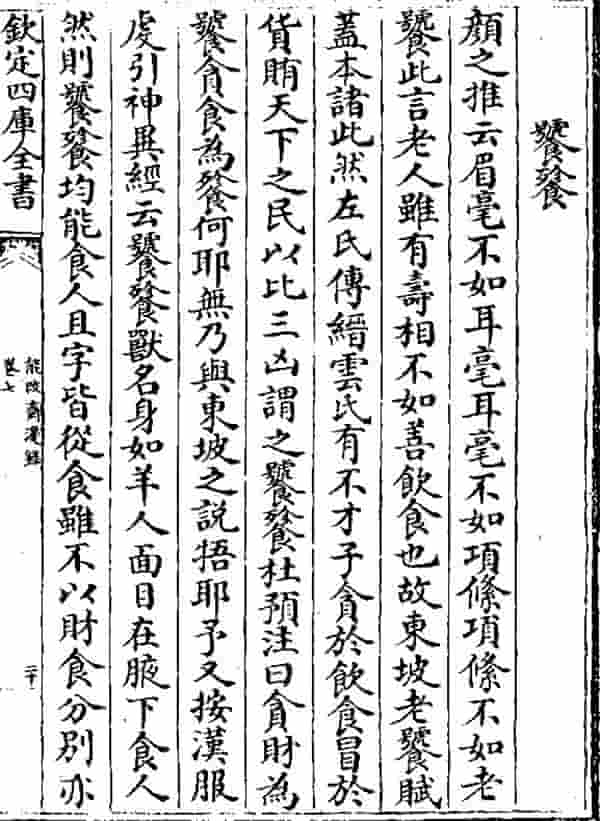 饕餮
顔之推云眉毫不如耳毫耳毫不如項絛項絛不如老
饕此言老人雖有壽相不如善飲食也故東坡老饕賦
蓋本諸此然左氏傳縉雲氏有不才子貪於飲食冒於
貨賄天下之民以比三凶謂之饕餮杜預注曰貪財為
饕貪食為餮何耶無乃與東坡之説牾耶予又按漢服
虔引神異經云饕餮獸名身如羊人面目在腋下食人
然則饕餮均能食人且字皆從食雖不以財食分别亦
欽定四庫全書
能改齋漫録
卷七
二十